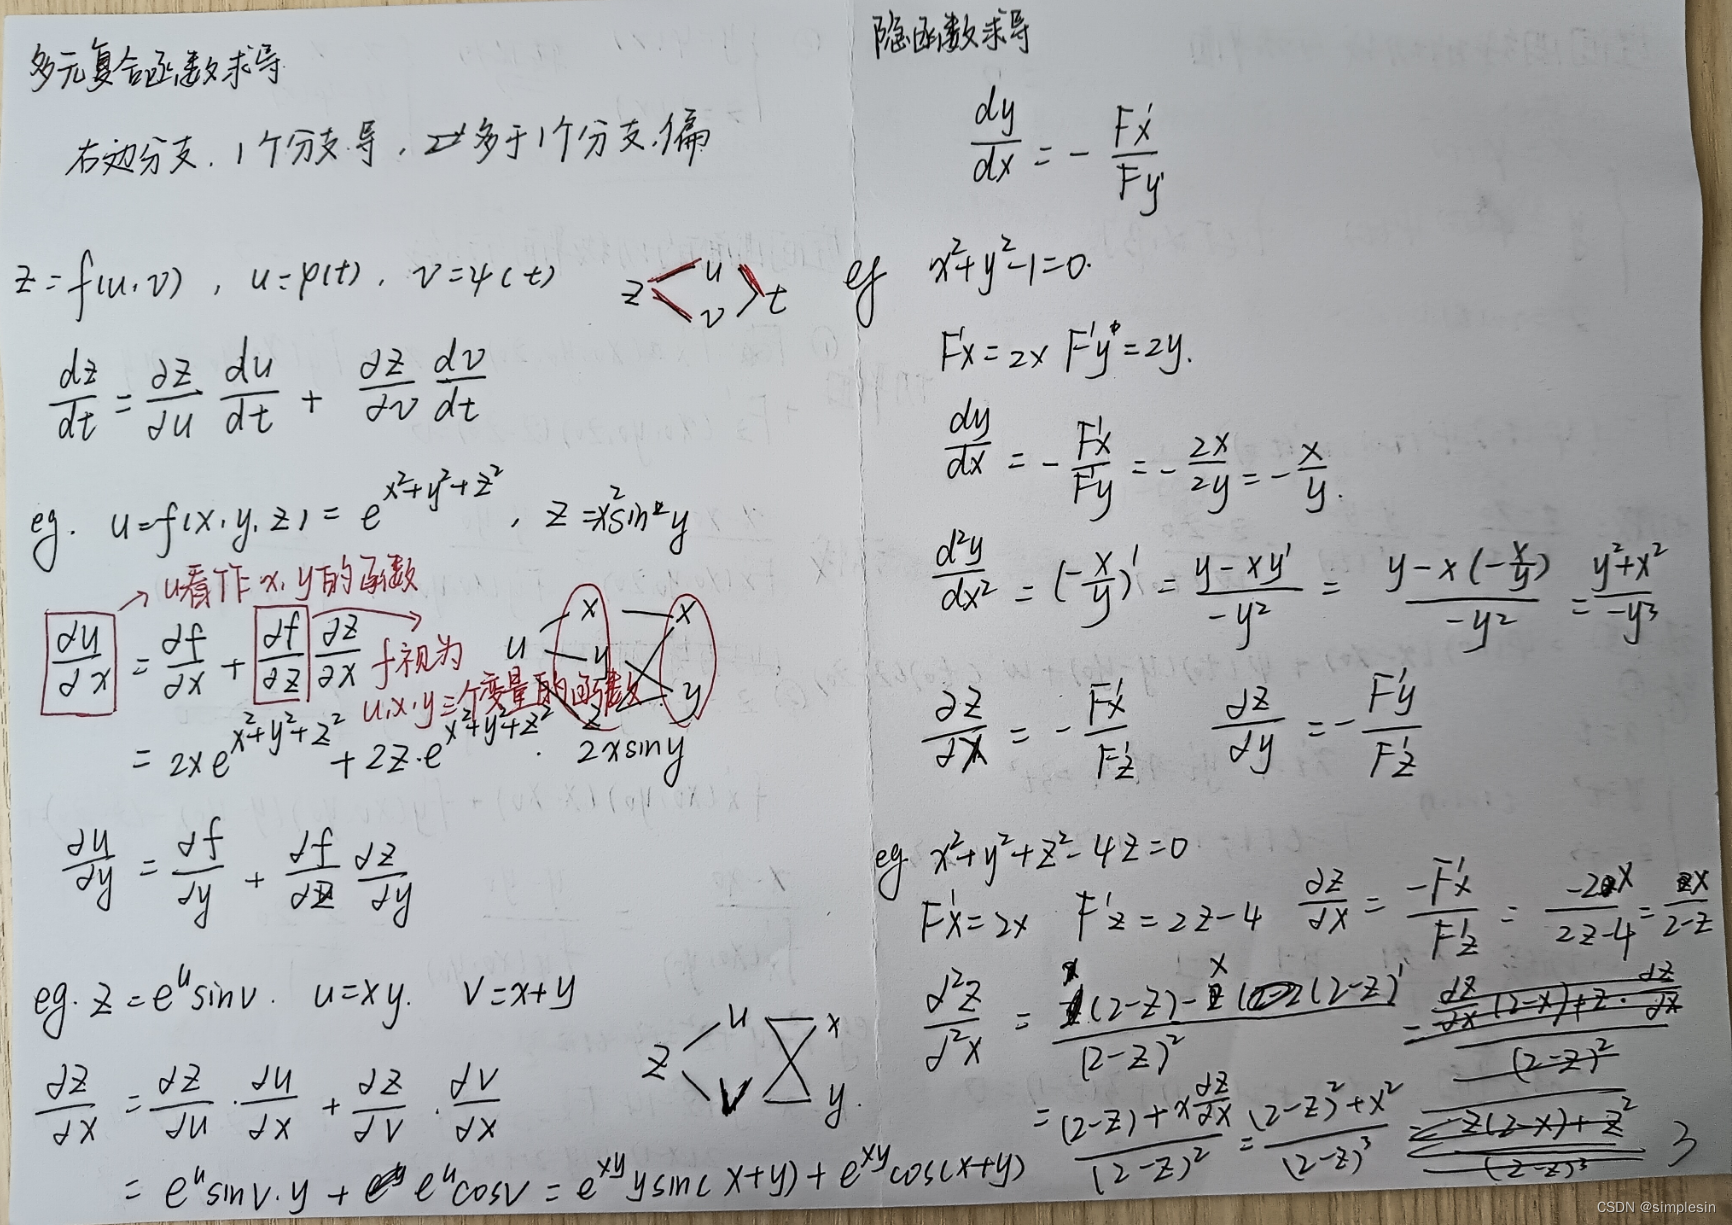 多元复合函数求导
右边分支,1个分支导,多于1个分支,偏
z=f(u,v), u=φ(t), v=ψ(t)
z u v t
dz/dt = ∂z/∂u du/dt + ∂z/∂v dv/dt
eg. u=f(x,y,z) = e^(x²+y²+z²), z=x²sin y
u看作x,y的函数
∂u/∂x = ∂f/∂x + ∂f/∂z ∂z/∂x
f视为
u,x,y三个变量的函数
u x y z x y
= 2xe^(x²+y²+z²) + 2z·e^(x²+y²+z²) · 2xsiny
∂u/∂y = ∂f/∂y + ∂f/∂z ∂z/∂y
eg. z=e^u sinv. u=xy. v=x+y
z u v x y.
∂z/∂x = ∂z/∂u · ∂u/∂x + ∂z/∂v · ∂v/∂x
= e^u sinv·y + e^u cosv = e^(xy) ysin(x+y) + e^(xy) cos(x+y)
隐函数求导
dy/dx = - F'x/F'y
eg x²+y²-1=0.
F'x=2x F'y=2y.
dy/dx = - F'x/F'y = - 2x/2y = - x/y.
d²y/dx² = (-x/y)' = (y-xy')/(-y²) = (y-x(-x/y))/(-y²) = (y²+x²)/(-y³)
∂z/∂x = - F'x/F'z ∂z/∂y = - F'y/F'z
eg x²+y²+z²-4z=0
F'x=2x F'z=2z-4 ∂z/∂x = -F'x/F'z = -2x/(2z-4) = x/(2-z)
∂²z/∂²x = (x'(2-z)-x(2-z)')/(2-z)²
= ((2-z)+x ∂z/∂x)/(2-z)² = ((2-z)²+x²)/(2-z)³
3
CSDN @simplesin